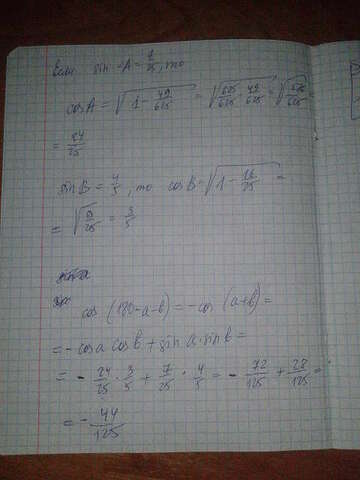 Если sin A = 7/25, то
cos A = √(1 - 49/625) = √(625/625 - 49/625) = √(576/625) =
= 24/25
sin B = 4/5, то cos B = √(1 - 16/25) =
= √(9/25) = 3/5
cos (180-a-b) = -cos (a+b) =
= -cos a cos b + sin a · sin b =
= - 24/25 · 3/5 + 7/25 · 4/5 = - 72/125 + 28/125 =
= - 44/125